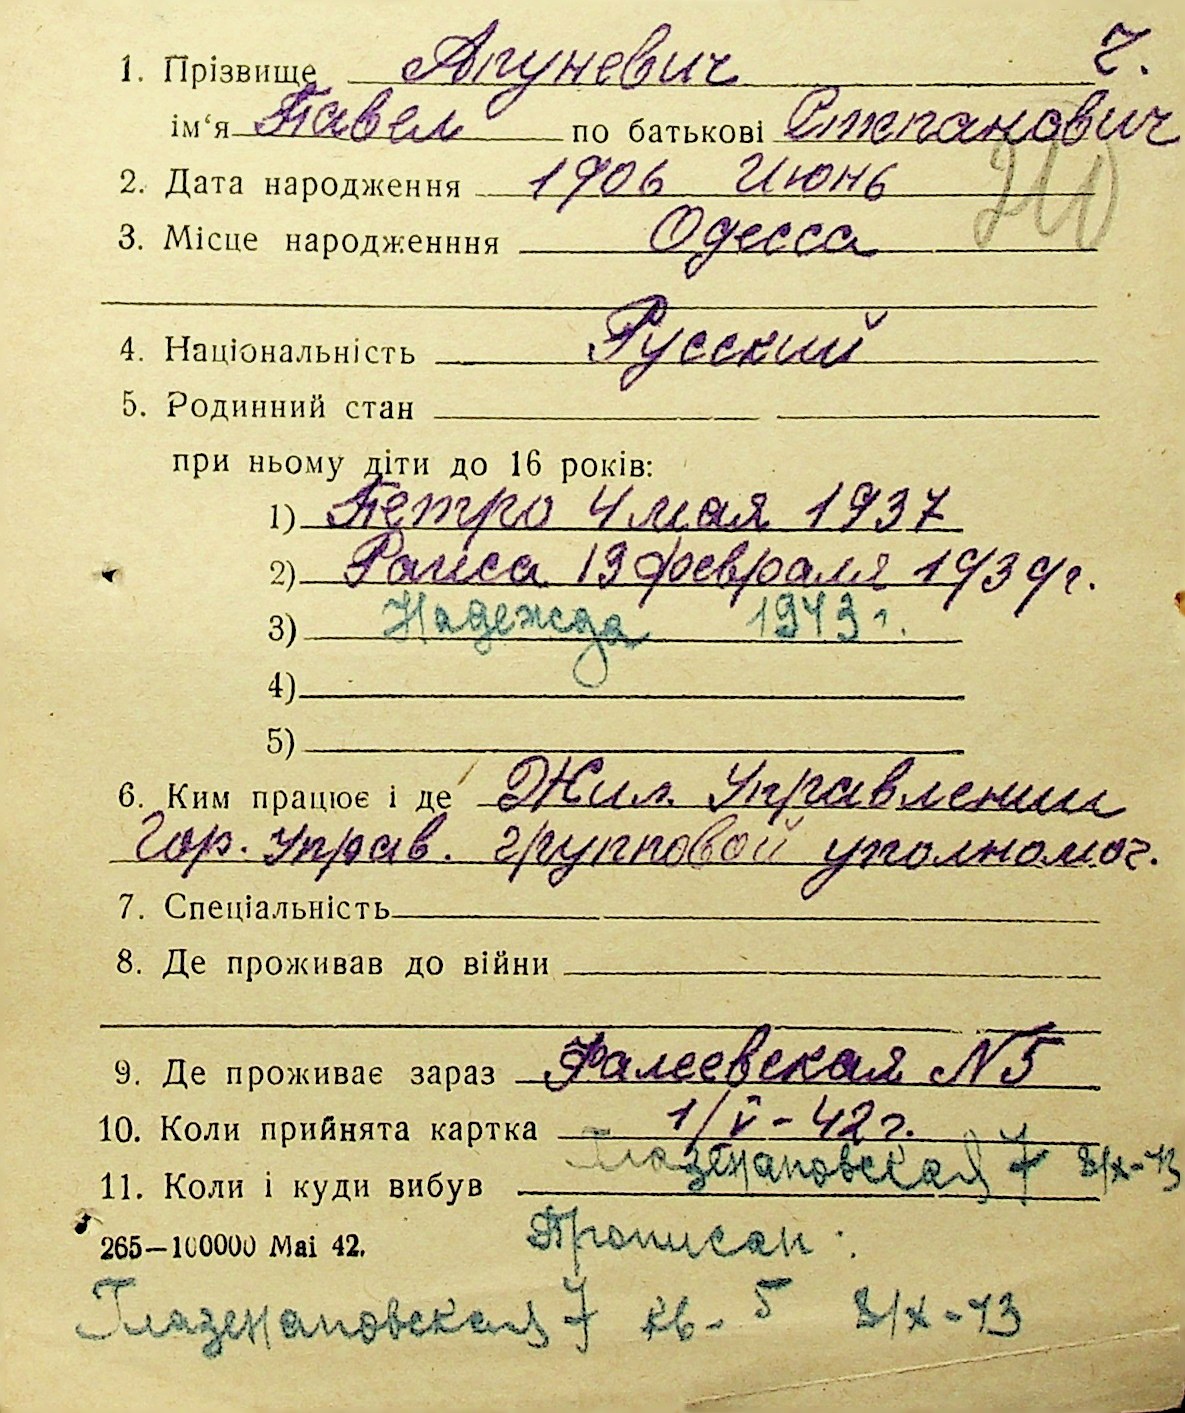 1. Прізвище Апуневич Ч.
ім‘я Павел по батькові Степанович
2. Дата народження 1906 Июнь
3. Місце народженння Одесса
4. Національність Русский
5. Родинний стан
при ньому діти до 16 років:
1) Петро 4 мая 1937
2) Раиса 19 февраля 1939 г.
3) Надежда 1943 г.
4)
5)
6. Ким працює і де Жил. Управлении
Гор. Управ. групповой уполномоч.
7. Спеціальність
8. Де проживав до війни
9. Де проживає зараз Фалеевская № 5
10. Коли прийнята картка 1/V - 42 г.
Глазенаповская 7 8/X - 43
11. Коли і куди вибув
265—100000 Mai 42. Прописан:
Глазенаповская 7 кв - 5 8/X - 43